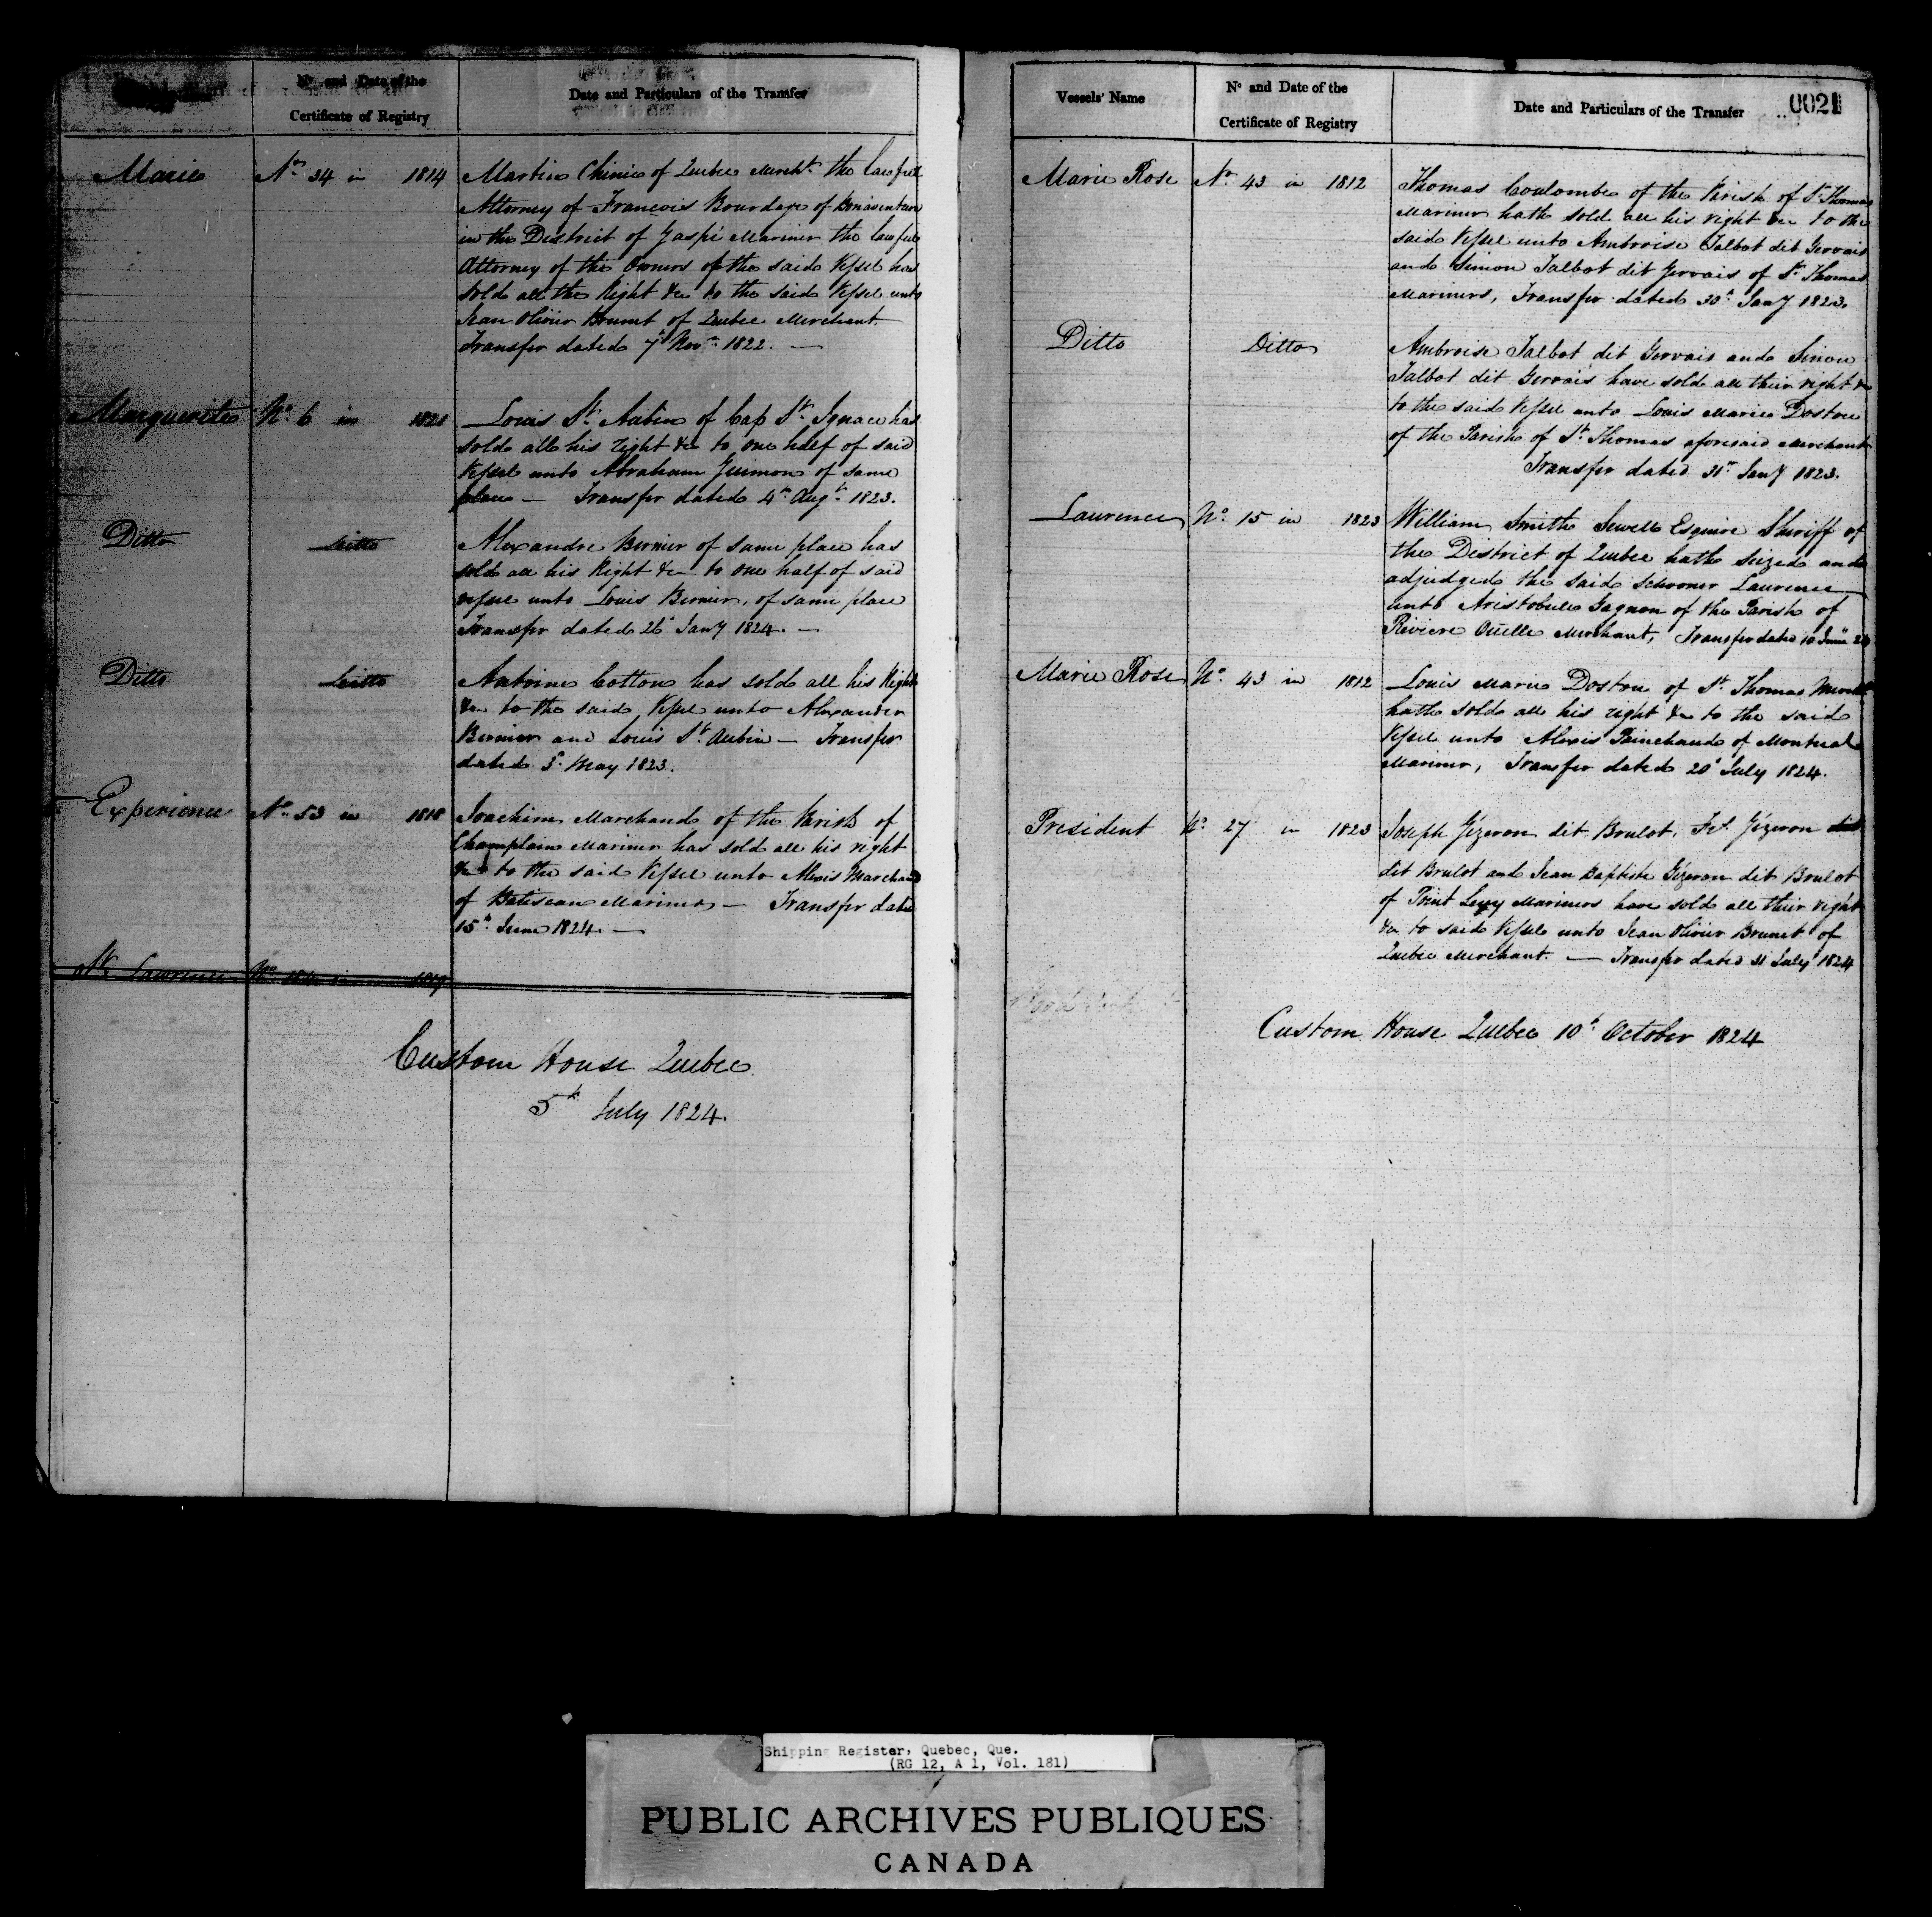 No and Date of the
Certificate of Registry
Date and Particulars of the Transfer
Marie No 34 in 1814 Martin Chinic of Quebec Mercht the lawful
Attorney of François Bourdage of Bonaventure
in the District of Gaspé Mariner the lawful
Attorney of the Owners of the said Vessel has
sold all the Right &c to the said Vessel unto
Jean Olivier Brunet of Quebec Merchant.
Transfer dated 7th Novr 1822. —
Marguerite No 6 in 1821 Louis St Aubin of Cap St Ignace has
sold all his right &c to one half of said
Vessel unto Abraham of same
place — Transfer dated 4th Augt 1823.
Ditto Ditto Alexandre Bernier of same place has
sold all his Right &c — to one half of said
vessel unto Louis Bernier, of same place
Transfer dated 26th Jany 1824. —
Ditto Ditto Antoine Cotton has sold all his Right
&c to the said Vessel unto Alexander
Bernier and Louis St Aubin — Transfer
dated May 1823.
Experience No 53 in 1818 Joachim Marchand of the Parish of
Champlain Mariner has sold all his right
&c to the said Vessel unto Alexis Marchand
of Batiscan Mariner — Transfer dated
15th June 1824. —
St Lawrence No in
Custom House Quebec
5th July 1824.
Vessels' Name
No and Date of the
Certificate of Registry
Date and Particulars of the Transfer
0021
Marie Rose No 43 in 1812 Thomas Coulombe of the Parish of St Thomas
Mariner hath sold all his right &c to the
said Vessel unto Ambroise Talbot dit Gervais
and Simon Talbot dit Gervais of St Thomas
Mariners, Transfer dated 30th Jany 1823.
Ditto Ditto Ambroise Talbot dit Gervais and Simon
Talbot dit Gervais have sold all their right &c
to the said Vessel unto Louis Marie Doston
of the Parish of St Thomas aforesaid Merchant
Transfer dated 31st Jany 1823.
Laurence No 15 in 1823 William Smith Sewell Esquire Sheriff of
the District of Quebec hath Seized and
adjudged the said Schooner Laurence
unto Aristobule Gagnon of the Parish of
Riviere Oüelle Merchant, Transfer dated 10 June 24
Marie Rose No 43 in 1812 Louis Marie Doston of St Thomas Mercht
hath sold all his right &c to the said
Vessel unto Alexis Painchaud of Montreal
Mariner, Transfer dated 20th July 1824.
President No 27 in 1823 Joseph Gézeron dit Brulot, Frs Gézeron dit
dit Brulot and Jean Baptiste Gézeron dit Brulot
of Point Levy Mariners have sold all their right
&c to said Vessel unto Jean Olivier Brunet of
Quebec Merchant. — Transfer dated 31 July 1824
Custom House Quebec 10th October 1824
Shipping Register, Quebec, Que.
(RG 12, A 1, Vol. 181)
PUBLIC ARCHIVES PUBLIQUES
CANADA